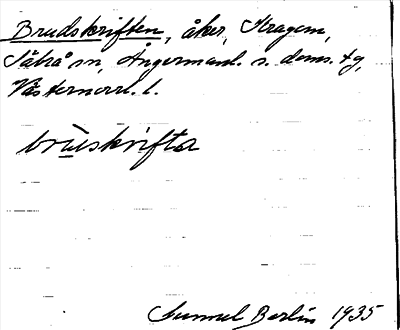 Brudskriften, åker, Kragem,
Säbrå sn, Ångermanl. s. doms. tg,
Västernorrl. l.
brùskrifta
Sumuel Berlin 1935